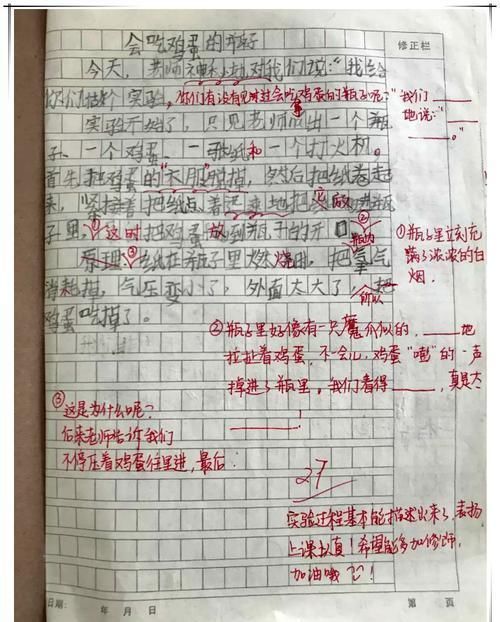 会吃鸡蛋的瓶子
修正栏
今天，老师神秘地对我们说："我给
你们做个实验，你们有没有见过会吃鸡蛋的瓶子呢？"
"我们____
地说：____
____。"
实验开始了，只见老师拿出一个瓶
子、一个鸡蛋、一张纸和一个打火机。
首先把鸡蛋的"衣服"脱掉，然后把纸卷起
来，紧接着把纸点着
子里，①这时把鸡蛋放到瓶子的开口②
①瓶子里立刻充
满了浓浓的白
烟。
原理：③纸在瓶子里燃烧时，把氧气
消耗掉，气压变小了，外面太大了，所以把
鸡蛋吃掉了。
②瓶子里好像有一只魔爪似的，____地
拉扯着鸡蛋，不一会儿，鸡蛋"嘭"的一声
掉进了瓶里。我们看得____，真是太
____！
③
这是为什么呢？
后来老师告诉我们
不停压着鸡蛋往里进，最后：
27
实验过程基本能描述出来了，表扬
上课认真！希望能多加修饰，
加油哦！
日期： 年 月 日
第 页